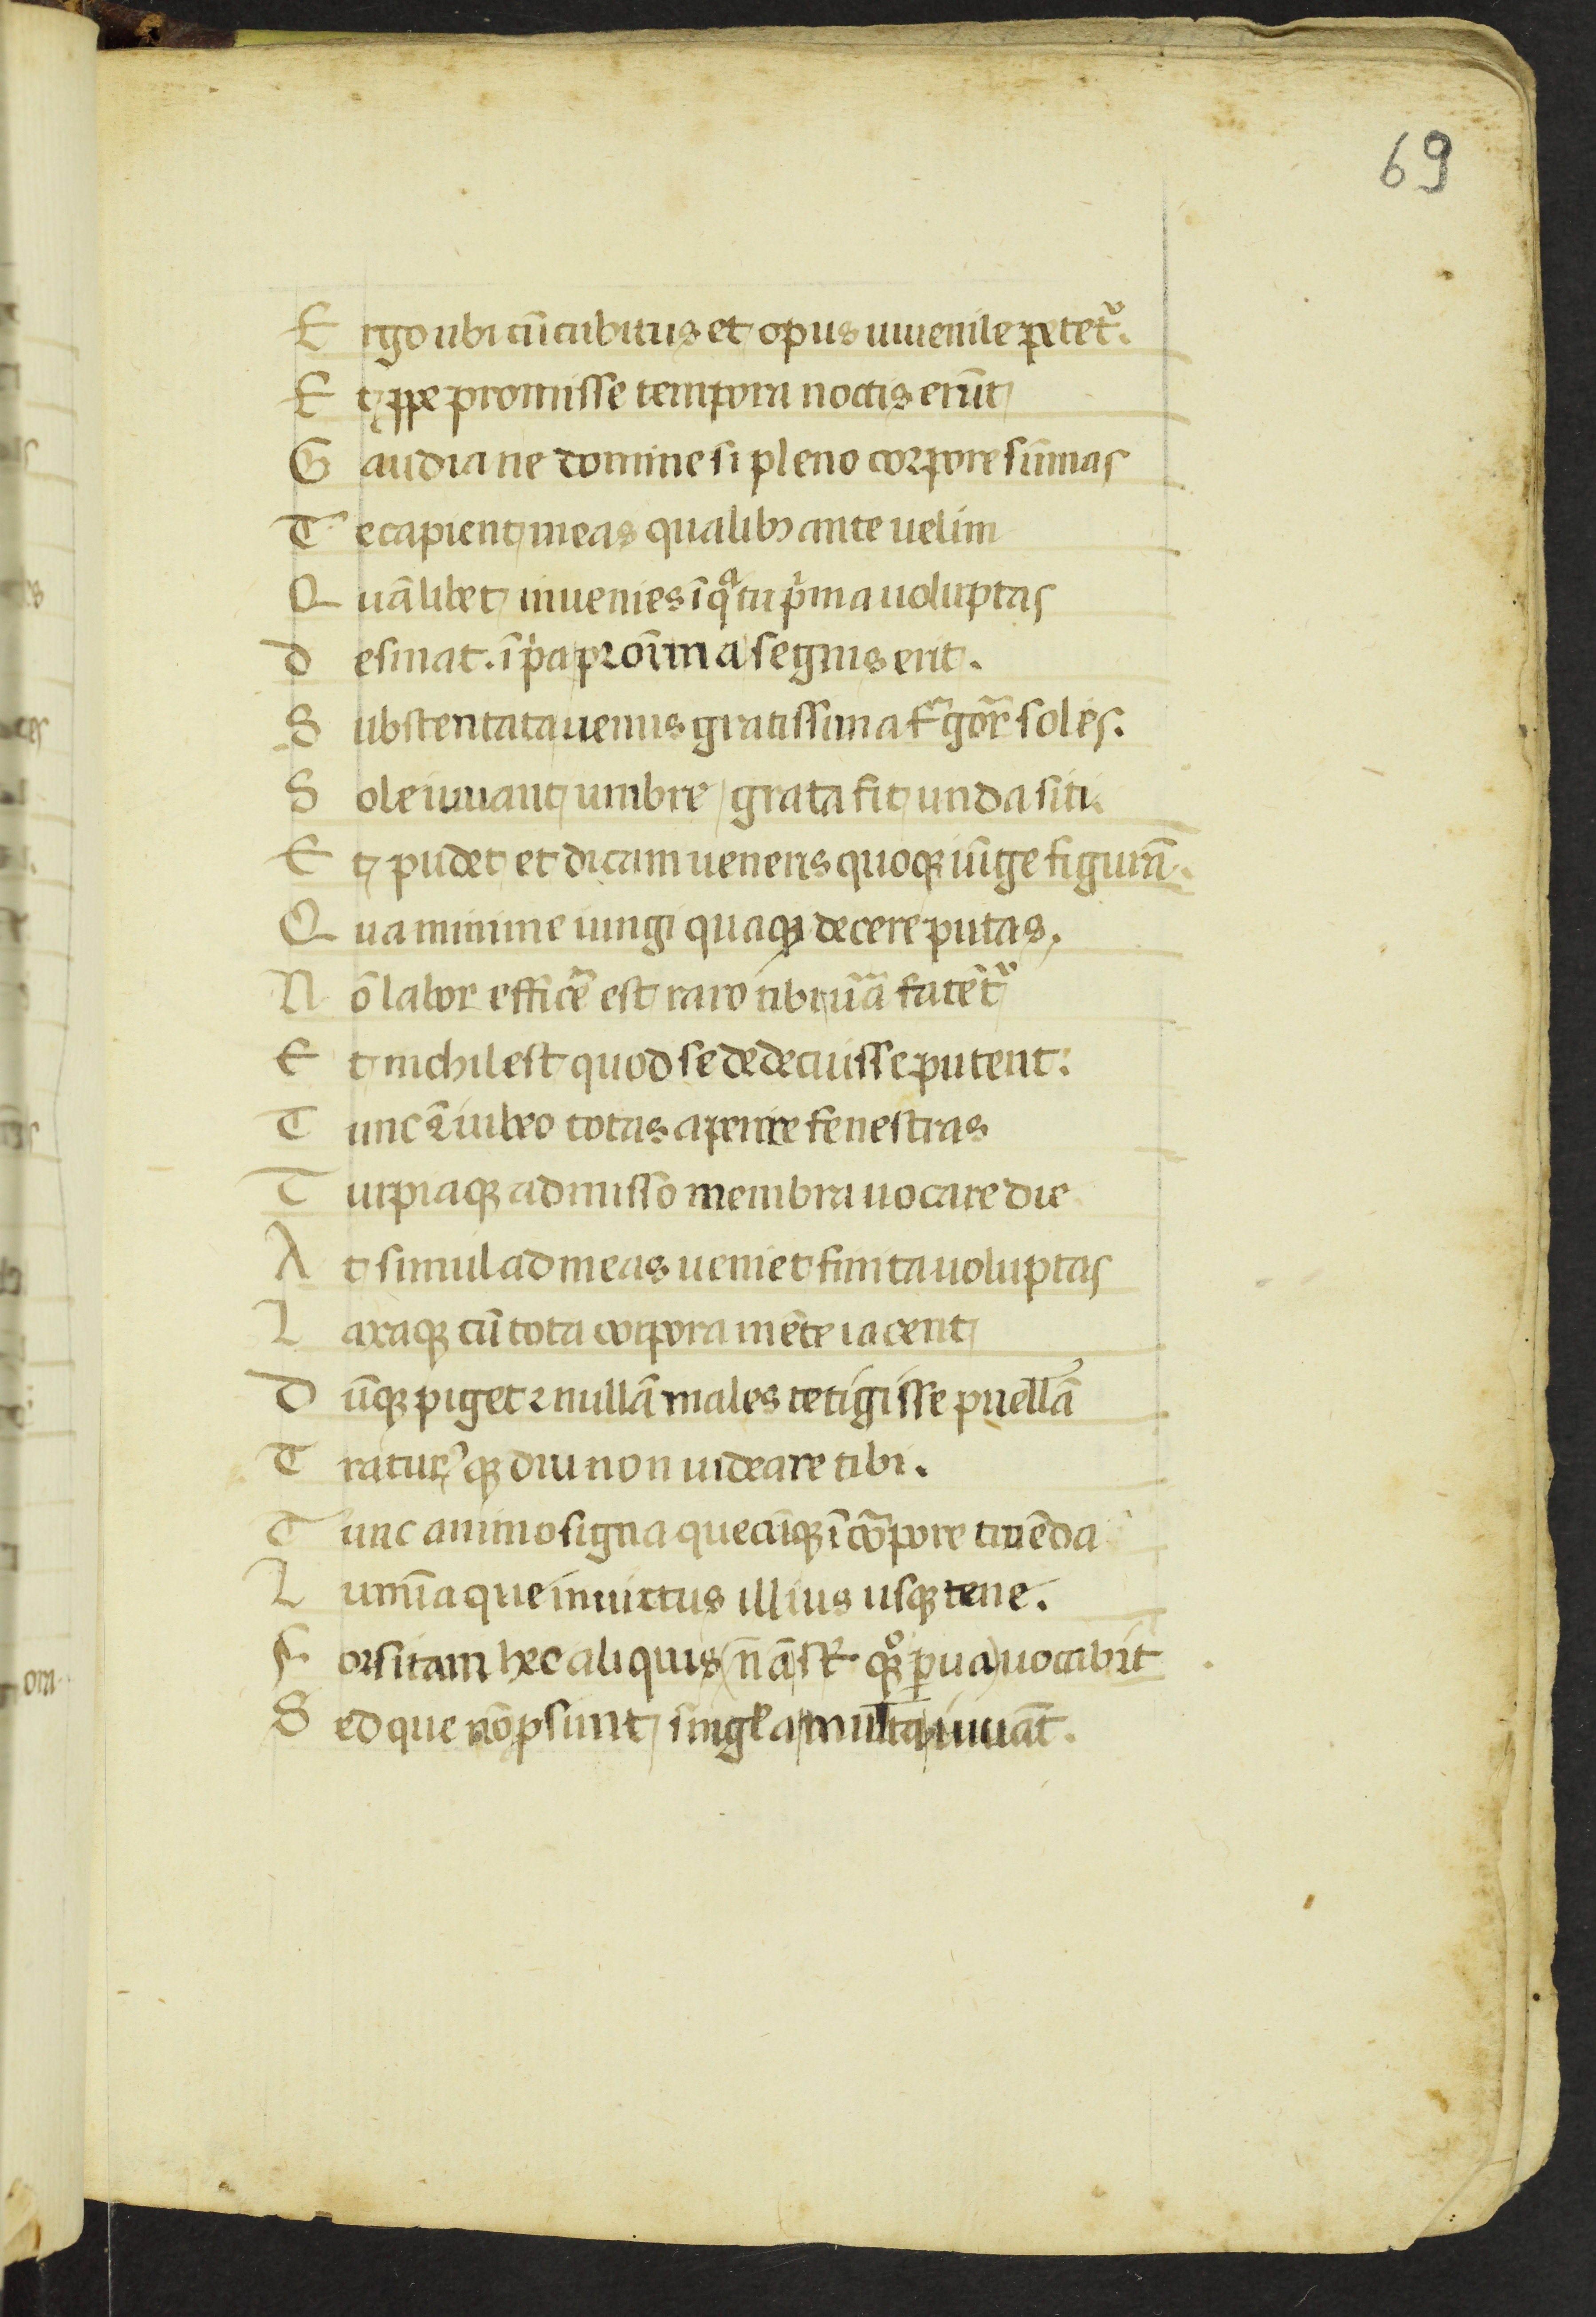 69
E rgo ubi cũ cubitus et opus iuuenile petet᷑.
E t ꝓpe promisse tempora noctis erũt
G audia ne domine si pleno corpore sũmas
T e capient meas qualibꝫ ante uelim
Q uãlibet inuenies ĩ qͣ tu pͥma uoluptas
d esinat. ĩ pͥa proĩma segnis erit.
S ubstentata uenus gratissima soles.
S ole iuuant umbre grata fit unda siti.
E t pudet et dicam ueneris quoqꝫ iũge figurã.
Q ua minime iungi quaqꝫ decere putas,
N õ labor efficẽ est raro tibi uã fatẽt᷑
E t nichil est quod se dedecuisse putent:
T unc ⁊ iubeo totas aperire fenestras
T urpiaqꝫ admisso membra uocare die
A t simul ad meas ueniet finita uoluptas
L axaqꝫ cũ tota corpora mẽte iacent
d ũqꝫ piget ⁊ nullã males tetigisse puellã
T ꝰqꝫ diu non uideare tibi.
T unc animo signa quecũqꝫ ĩ cõpore tuẽda
L umĩaque inuictus illius usqꝫ tene.
F orsitam hec aliquis nã st̃ uocabit
S ed que nõ ꝓsunt singl̃a multa iuuãt.